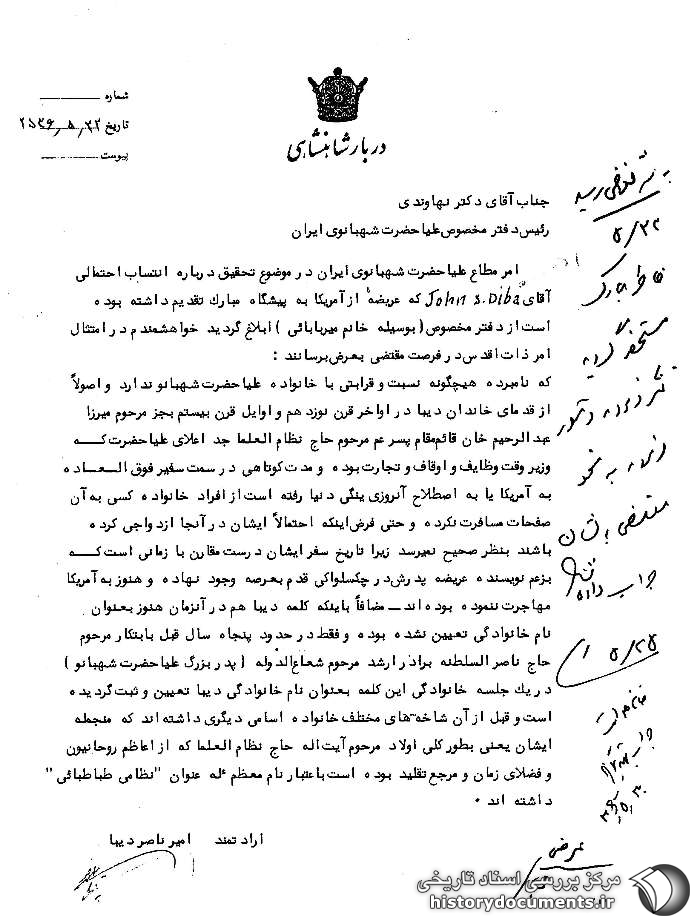 دربار شاهنشاهی
شماره
تاریخ ۲۵۳۶٫۵٫۲۲
پیوست
جناب آقای دکتر نهاوندی
رئیس دفتر مخصوص علیاحضرت شهبانوی ایران
امر مطاع علیاحضرت شهبانوی ایران در موضوع تحقیق درباره انتساب احتمالی
آقای John S. Diba که عریضهٔ از آمریکا به پیشگاه مبارک تقدیم داشته بوده
است از دفتر مخصوص (بوسیله خانم میربابائی) ابلاغ گردید خواهشمندم در امتثال
امر ذات اقدس در فرصت مقتضی بعرض برسانند :
که نامبرده هیچگونه نسبت و قرابتی با خانواده علیاحضرت شهبانو ندارد و اصولاً
از قدمای خاندان دیبا در اواخر قرن نوزدهم و اوایل قرن بیستم بجز مرحوم میرزا
عبدالرحیم خان قائم‌مقام پسر عم مرحوم حاج نظام العلما جد اعلای علیاحضرت کـــه
وزیر وقت وظایف و اوقاف و تجارت بوده و مدت کوتاهی در سمت سفیر فوق العـــاده
به آمریکا یا به اصطلاح آنروزی ینگی دنیا رفته است از افراد خانواده کسی به آن
صفحات مسافرت نکرده و حتی فرض اینکه احتمالاً ایشان در آنجا ازدواجی کرده
باشند بنظر صحیح نمیرسد زیرا تاریخ سفر ایشان درست مقارن با زمانی است کـــه
بزعم نویسنده عریضه پدرش در چکسلواکی قدم بعرصه وجود نهاده و هنوز به آمریکا
مهاجرت ننموده بوده‌اند ــ مضافاً باینکه کلمه دیبا هم در آنزمان هنوز بعنوان
نام خانوادگی تعیین نشده بوده و فقط در حدود پنجاه سال قبل بابتکار مرحوم
حاج ناصر السلطنه برادر ارشد مرحوم شعاع الدوله (پدر بزرگ علیاحضرت شهبانو)
در یک جلسه خانوادگی این کلمه بعنوان نام خانوادگی دیبا تعیین و ثبت گردیده
است و قبل از آن شاخه‌های مختلف خانواده اسامی دیگری داشته‌اند که منجمله
ایشان یعنی بطور کلی اولاد مرحوم آیت‌اله حاج نظام العلما که از اعاظم روحانیون
و فضلای زمان و مرجع تقلید بوده است باعتبار نام معظم‌له عنوان "نظامی طباطبائی"
داشته اند ۰
ارادتمند امیر ناصر دیبا
به شرفعرضی رسید
۵/۲۲
خاطر مبارک
مستحضر گردید
مقتضی
جواب داده
۵/۲۵
عرضی
مرکز بررسی اسناد تاریخی
historydocuments.ir